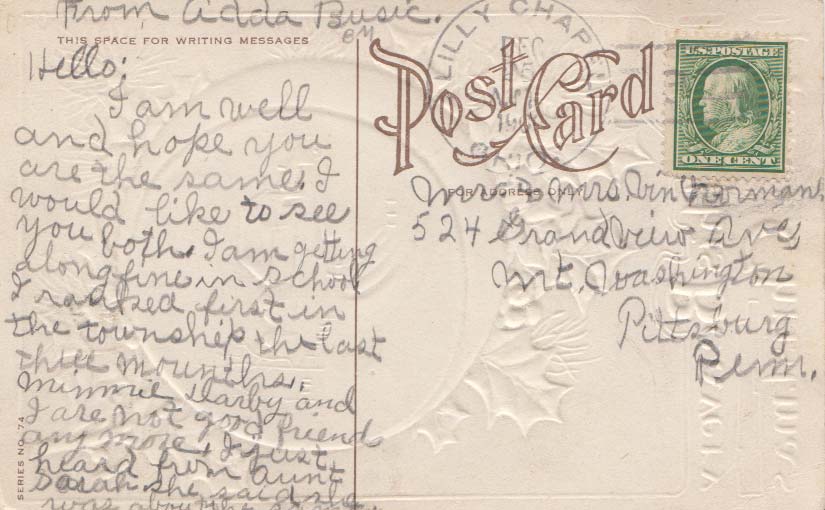 From Adda Busic.
THIS SPACE FOR WRITING MESSAGES
Hello:
I am well
and hope you
are the same. I
would like to see
you both. I am getting
along fine in school
I ranked first in
the township the last
three mounths.
Minnie Darby and
I are not good friends
any more. I just
heard from aunt
Sarah she said she
was about the same
SERIES NO. 74
LILLY CHAPEL
DEC
Post Card
FOR ADDRESS ONLY
U.S. POSTAGE
ONE CENT
Mr. & Mrs. Vin Norman
524 Grandview Ave
Mt. Washington
Pittsburg
Penn.